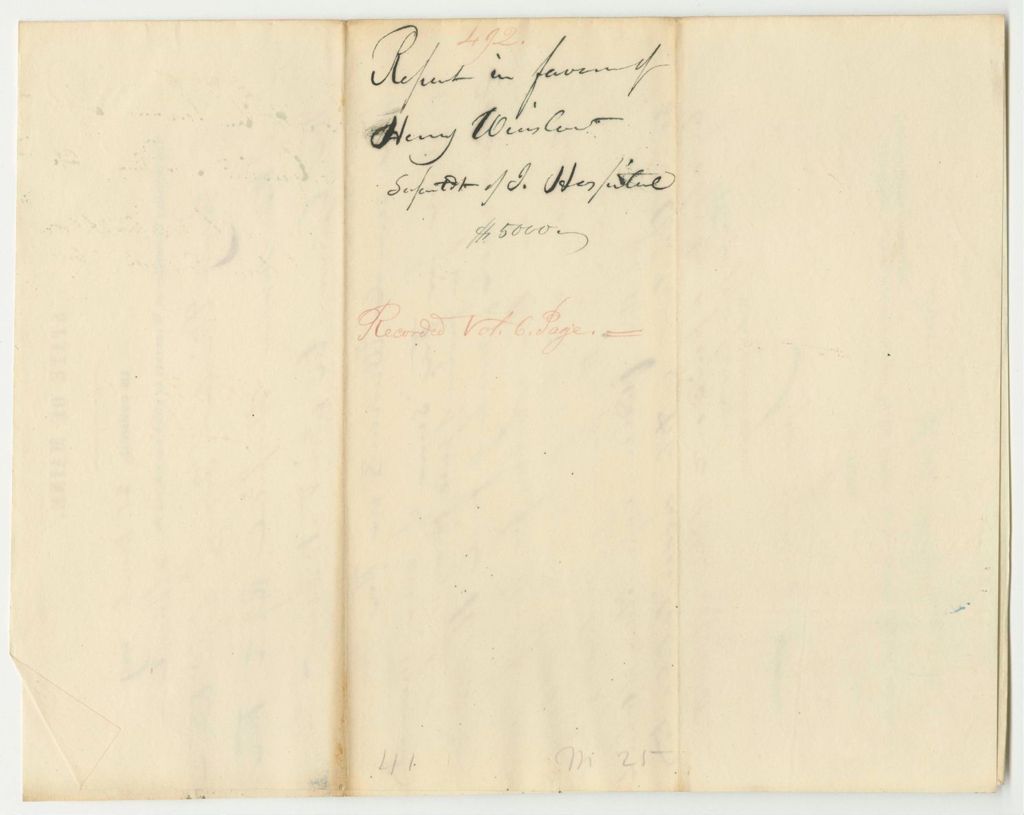 492.
Report in favour of
Henry Winslow
Supertdt of I. Hospital
$5000
Recorded Vol. 6. Page. =
41
M 25